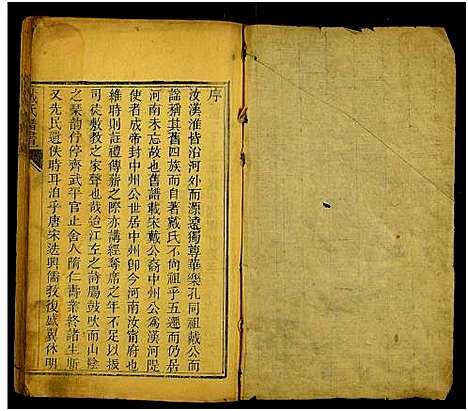 序
汝漢淮皆沿河外而源遠獨尊華樂孔同祖戴公而
謚稱其舊四族而自著戴氏不向祖乎五遷而仍居
河南未忘故也舊譜載宋戴公裔中州公為漢河隄
使者成帝封中州公世居中州即今河南汝甯府也
維時則註禮傳薪之際亦講經奪席之年不足以振
司徒敷教之家聲也哉迨江左之詩賜鼓吹而山陰
之琴韵佇停齊武平官正舍人隋仁壽業終諸生斯
又先氏遺俠時耳洎乎唐宋迭興儒教復盛翼休明
戴氏譜書